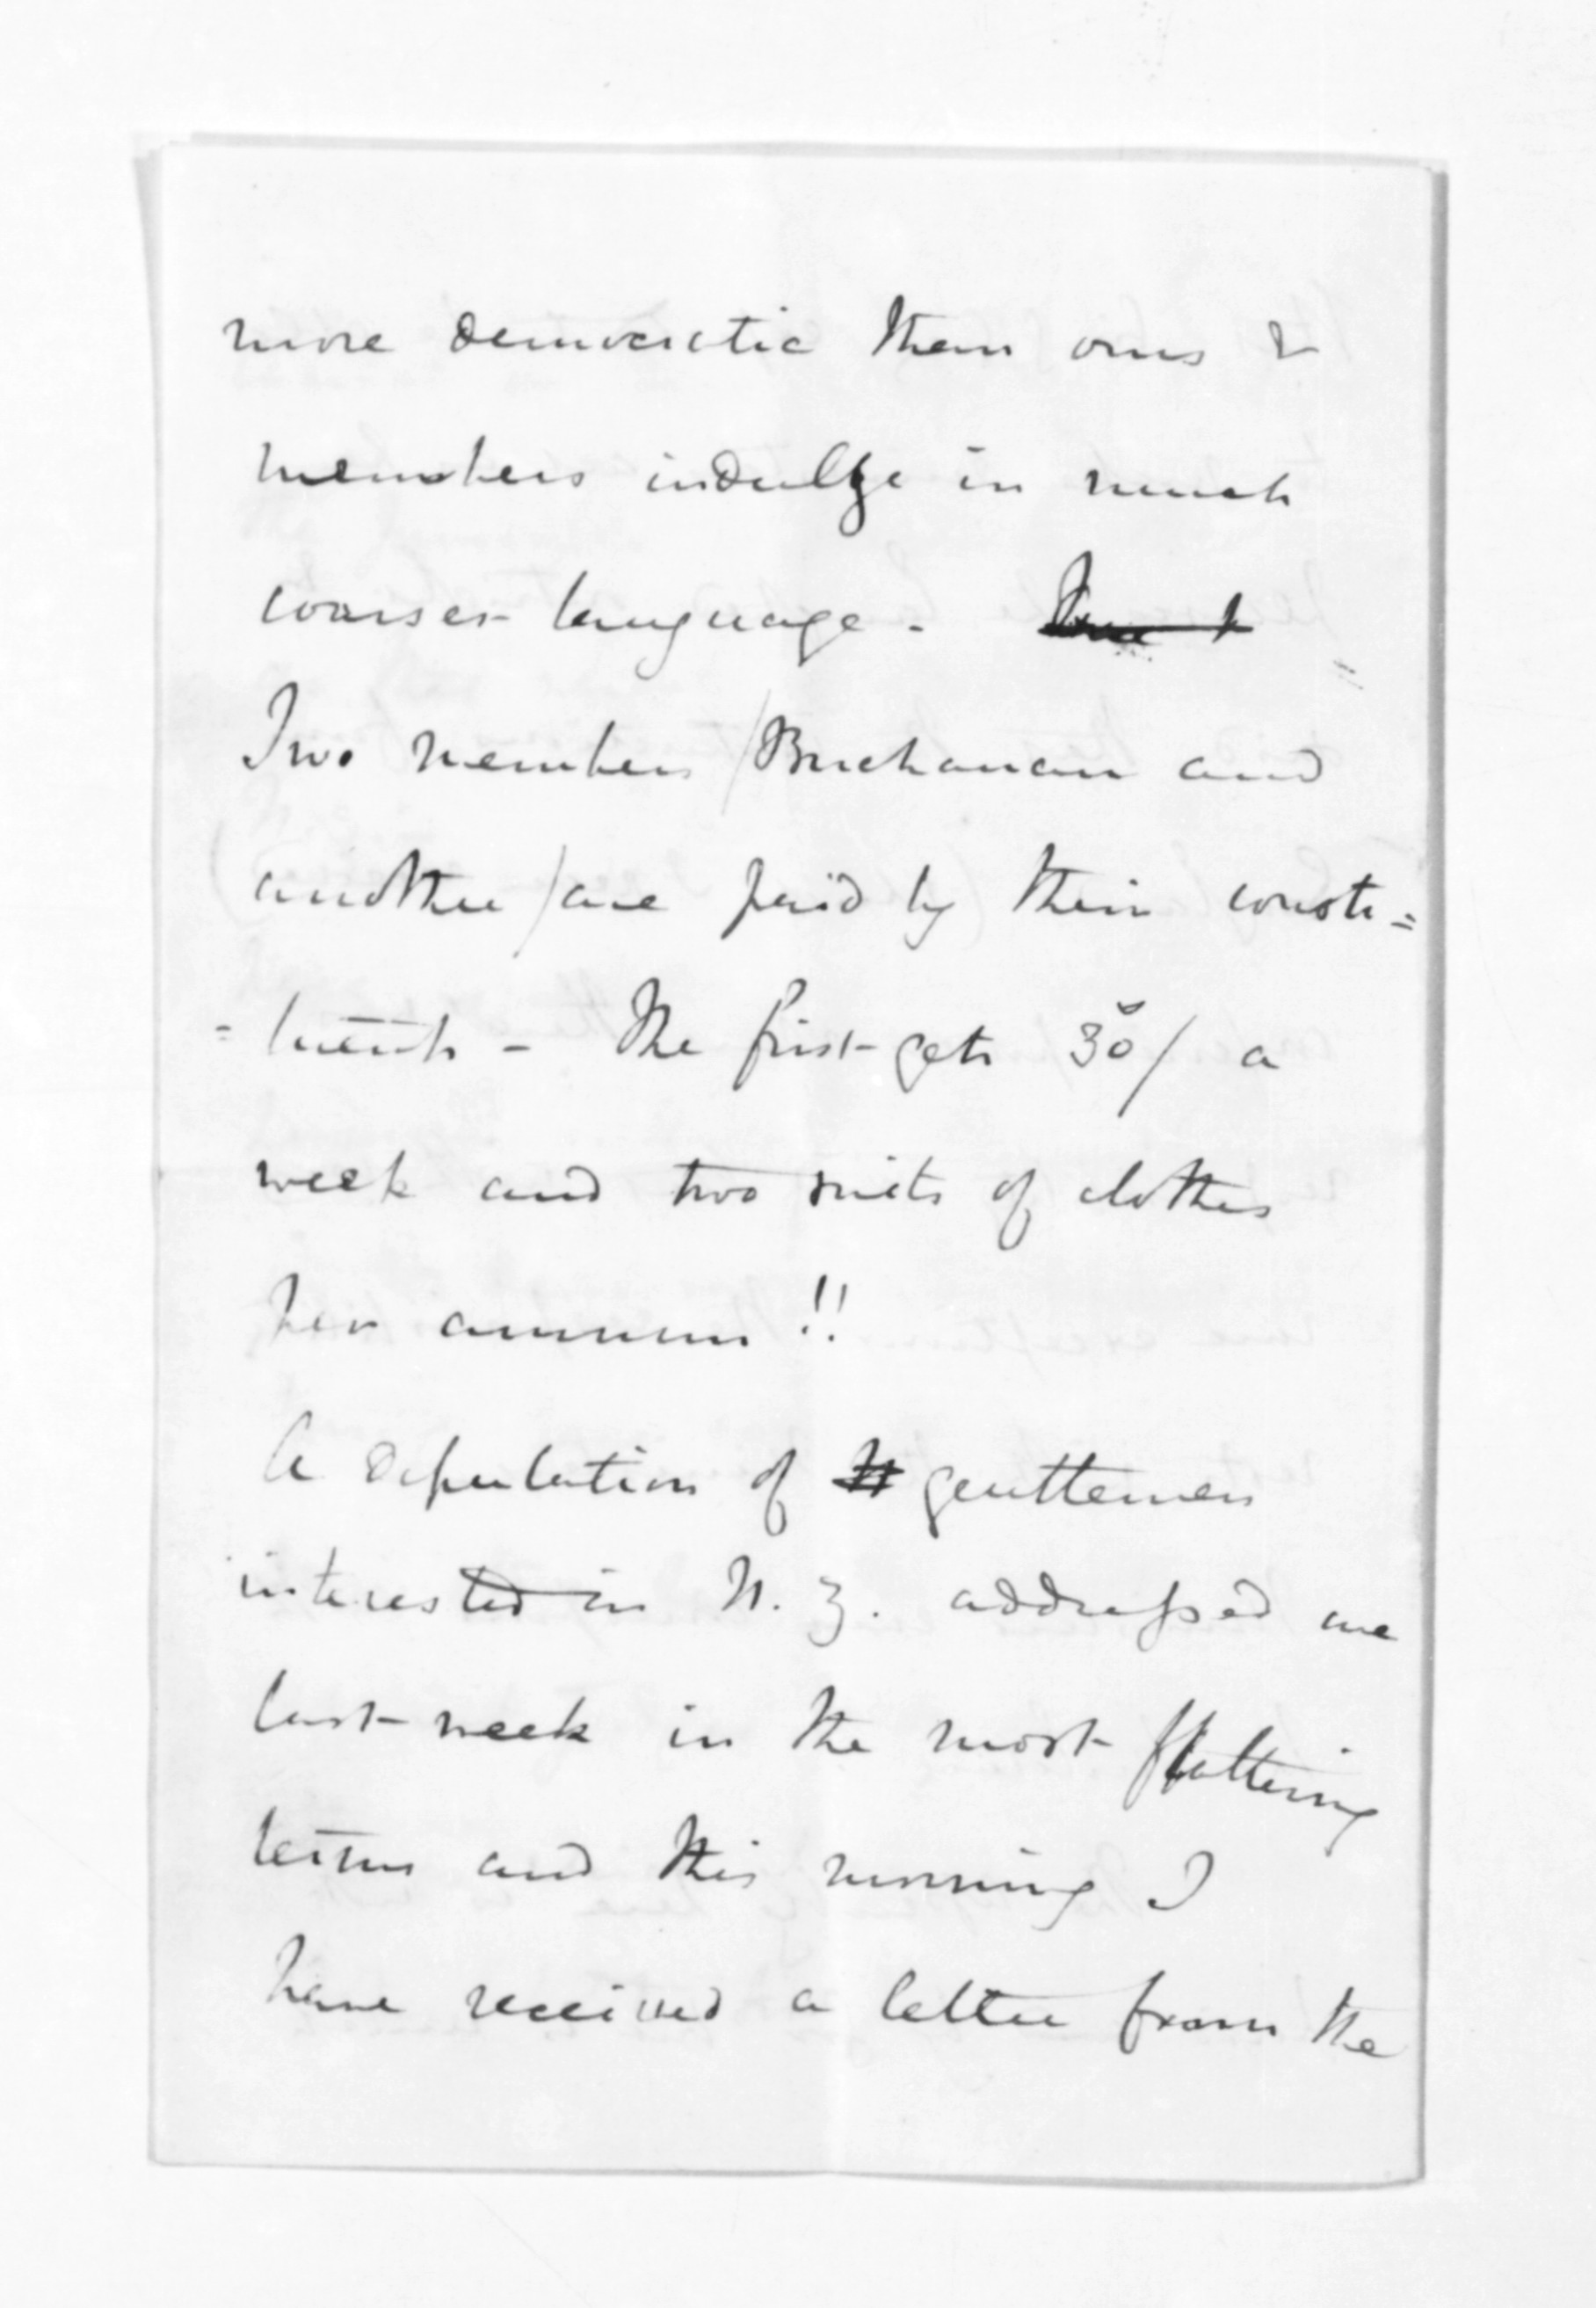 more democratic than ours &
members indulge in much
coarser language -
Two members (Buchanan and
another) are paid by their consti=
=tuents - The first gets 30/ a
week and two suits of clothes
per annum !!
A deputation of gentlemen
interested in N. Z. addressed me
last week in the most flattering
terms and this morning I
have received a letter from the